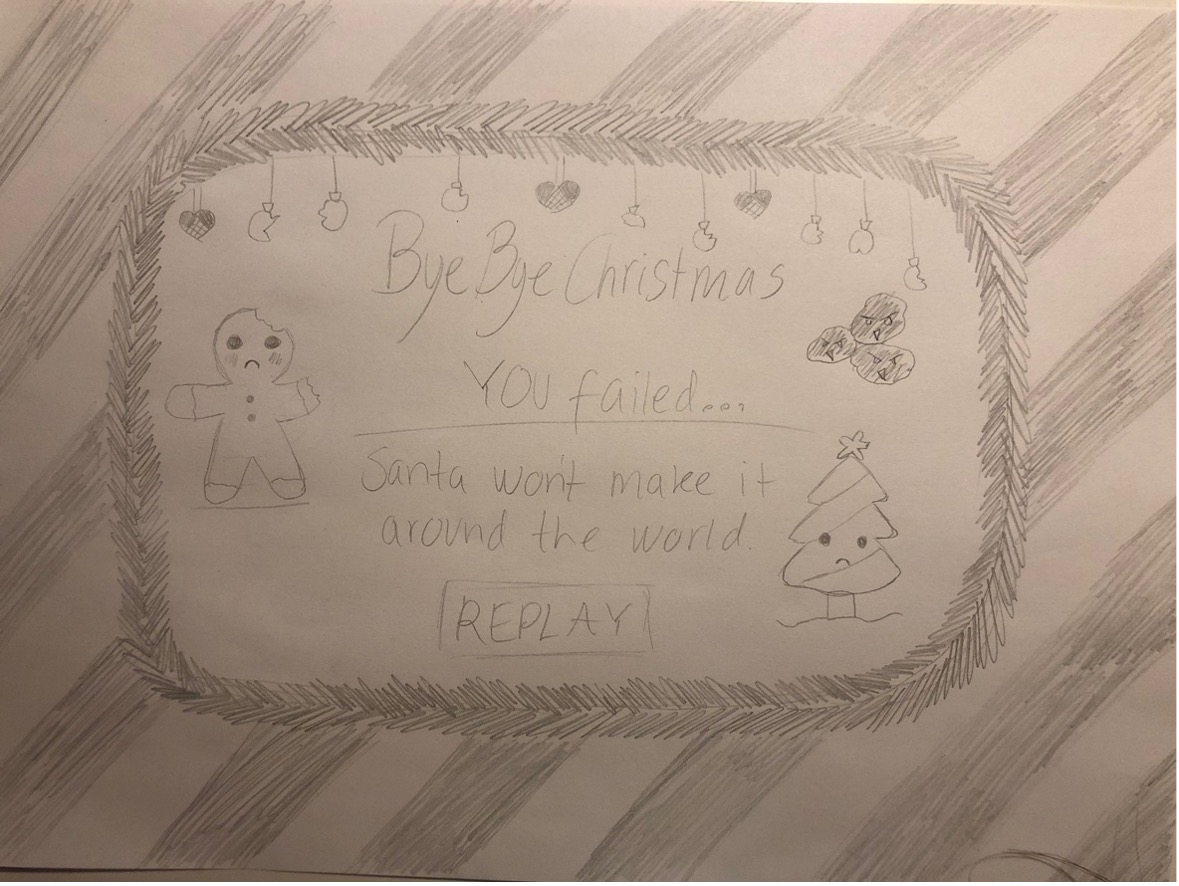 Bye Bye Christmas
YOU failed...
Santa won't make it
around the world.
REPLAY